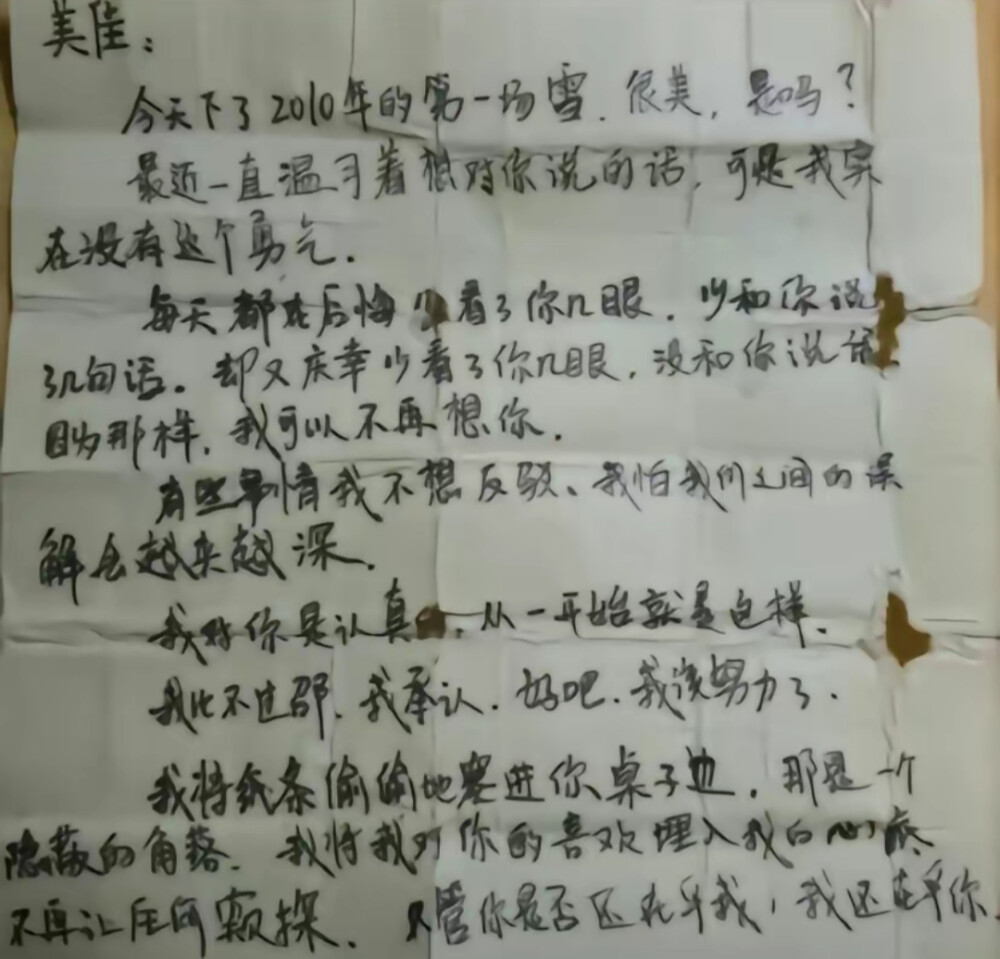 美佳：
今天下了2010年的第一场雪．很美，是吗？
最近一直温习着想对你说的话，可是我实
在没有这个勇气．
每天都在后悔少看了你几眼．少和你说
了几句话。却又庆幸少看了你几眼，没和你说话
因为那样，我可以不再想你．
有些事情我不想反驳、我怕我们之间的误
解会越来越深．
我对你是认真，从一开始就是这样．
我比不过邵、我承认．好吧．我该努力了．
我将纸条偷偷地塞进你桌子边，那是一个
隐蔽的角落．我将我对你的喜欢埋入我的心底
不再让任何窥探．不管你是否还在乎我，我还在乎你